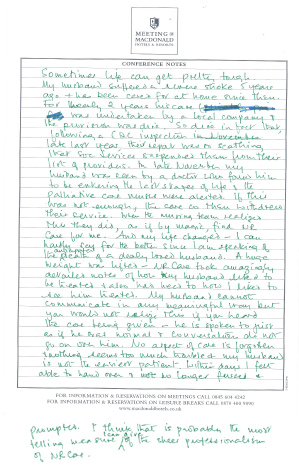 MEETING @
MACDONALD
HOTELS & RESORTS
CONFERENCE NOTES
Sometimes life can get pretty tough.
My husband suffered a severe stroke 5 years
ago & has been cared for at home since then.
For nearly 2 years his care
was undertaken by a local company &
the provision was dire. So dire in fact that
following a CQC inspection in November
late last year, their report was so scathing
that Soc Services suspended them from their
list of providers. In late November my
husband was seen by a doctor who found him
to be entering the last stages of life & the
palliative care nurses were alerted. If this
was not enough, the care co then withdrew
their service. When the nursing team realised
this they did, as if by magic, find NR
Care for me. And my life changed - I can
hardly say for the better since I am speaking of
the death of a dearly loved husband. A huge
weight was lifted - NR Care took amazingly
detailed notes of how my husband liked to
be treated & also had need to how I liked to
see him treated. My husband cannot
communicate in any meaningful way but
you would not realise this if you heard
the care being given - he is spoken to just
as if he was normal & conversations do not
go on over him. No aspect of care is forgotten
nothing seems too much trouble & my husband
is not the easiest patient. Within days I felt
able to hand over & not be longer fussed &
FOR INFORMATION & RESERVATIONS CALL 0845 604 4242
FOR INFORMATION & RESERVATIONS ON LEISURE BREAKS CALL 0870 400 9090
www.macdonaldhotels.co.uk
prompted. I think that is probably the most
telling measure I can give of the sheer professionalism
of NR Care.